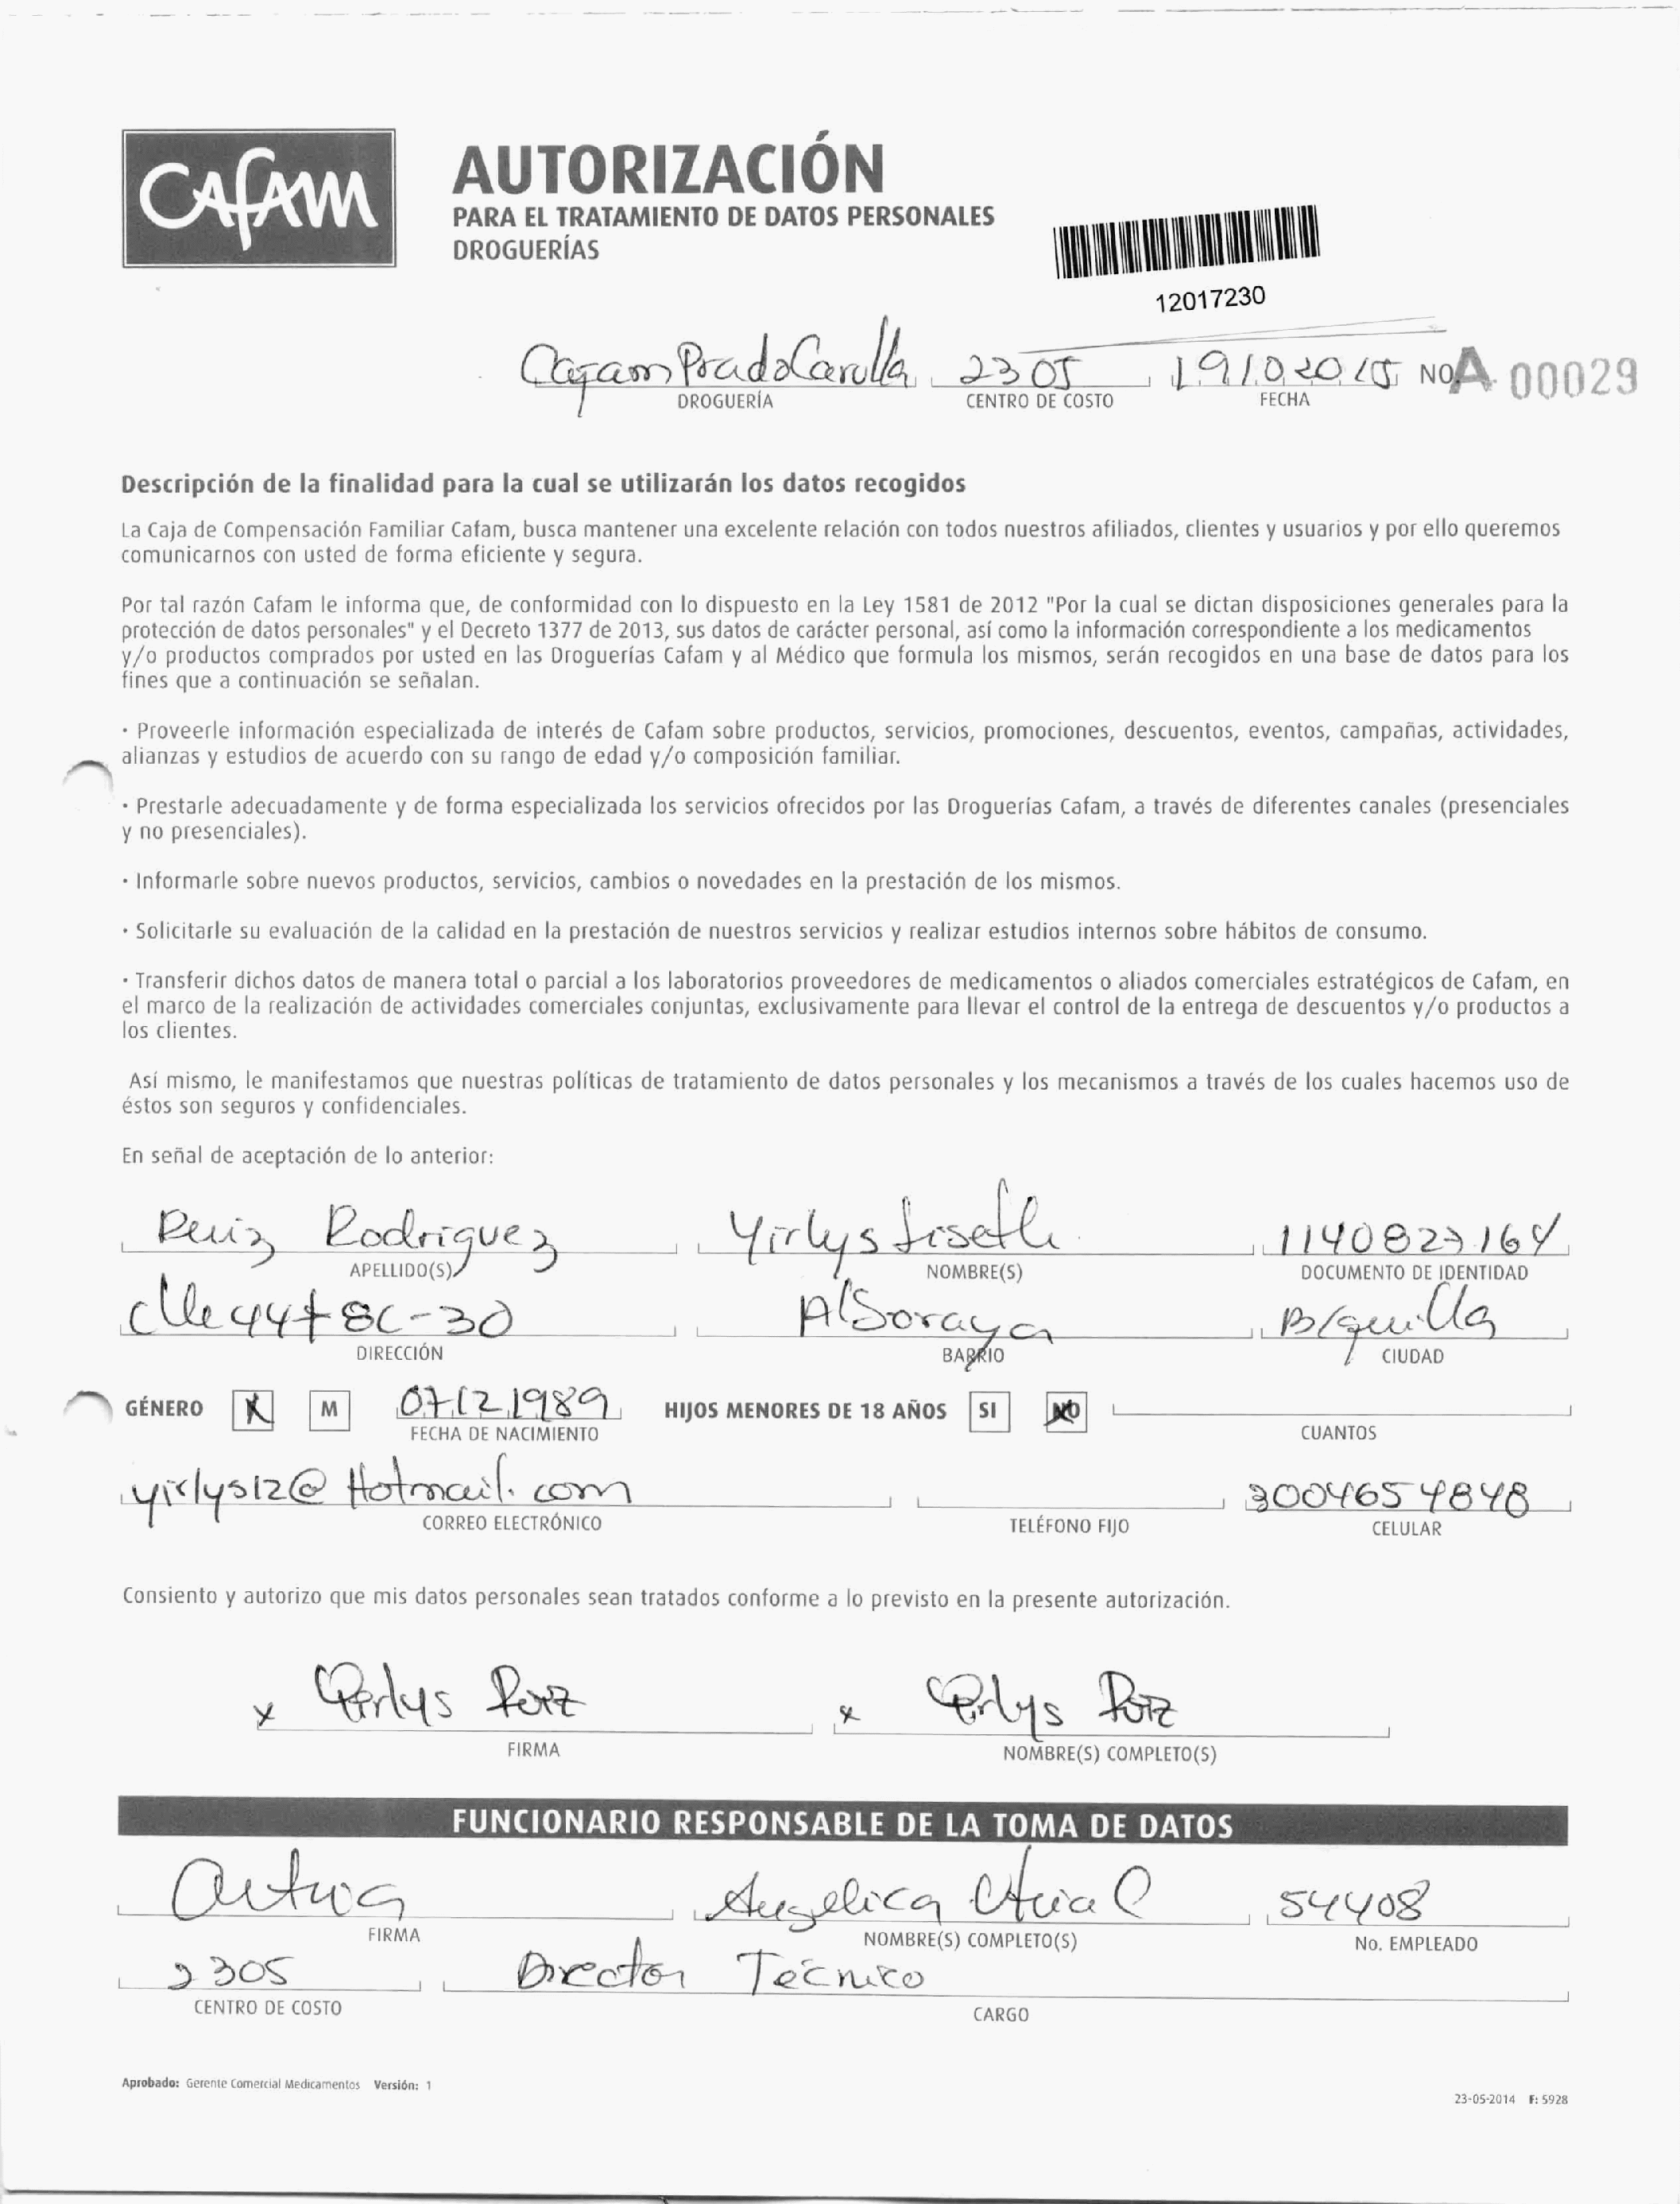 CAFAM
AUTORIZACIÓN
PARA EL TRATAMIENTO DE DATOS PERSONALES
DROGUERÍAS
12017230
Cafam Prado Carulla 2305 19 10 2015 NO. A 00029
DROGUERÍA CENTRO DE COSTO FECHA
Descripción de la finalidad para la cual se utilizarán los datos recogidos
La Caja de Compensación Familiar Cafam, busca mantener una excelente relación con todos nuestros afiliados, clientes y usuarios y por ello queremos
comunicarnos con usted de forma eficiente y segura.
Por tal razón Cafam le informa que, de conformidad con lo dispuesto en la Ley 1581 de 2012 "Por la cual se dictan disposiciones generales para la
protección de datos personales" y el Decreto 1377 de 2013, sus datos de carácter personal, así como la información correspondiente a los medicamentos
y/o productos comprados por usted en las Droguerías Cafam y al Médico que formula los mismos, serán recogidos en una base de datos para los
fines que a continuación se señalan.
· Proveerle información especializada de interés de Cafam sobre productos, servicios, promociones, descuentos, eventos, campañas, actividades,
alianzas y estudios de acuerdo con su rango de edad y/o composición familiar.
· Prestarle adecuadamente y de forma especializada los servicios ofrecidos por las Droguerías Cafam, a través de diferentes canales (presenciales
y no presenciales).
· Informarle sobre nuevos productos, servicios, cambios o novedades en la prestación de los mismos.
· Solicitarle su evaluación de la calidad en la prestación de nuestros servicios y realizar estudios internos sobre hábitos de consumo.
· Transferir dichos datos de manera total o parcial a los laboratorios proveedores de medicamentos o aliados comerciales estratégicos de Cafam, en
el marco de la realización de actividades comerciales conjuntas, exclusivamente para llevar el control de la entrega de descuentos y/o productos a
los clientes.
Así mismo, le manifestamos que nuestras políticas de tratamiento de datos personales y los mecanismos a través de los cuales hacemos uso de
éstos son seguros y confidenciales.
En señal de aceptación de lo anterior:
Ruiz Rodriguez Yirlys Liseth 1140823164
APELLIDO(S) NOMBRE(S) DOCUMENTO DE IDENTIDAD
clle 44# 8C-30 Alboraya B/quilla
DIRECCIÓN BARRIO CIUDAD
GÉNERO M 07 12 1989 HIJOS MENORES DE 18 AÑOS SI NO
FECHA DE NACIMIENTO CUANTOS
yirlys12@Hotmail.com 3004654848
CORREO ELECTRÓNICO TELÉFONO FIJO CELULAR
Consiento y autorizo que mis datos personales sean tratados conforme a lo previsto en la presente autorización.
x Yirlys Ruiz x Yirlys Ruiz
FIRMA NOMBRE(S) COMPLETO(S)
FUNCIONARIO RESPONSABLE DE LA TOMA DE DATOS
Angelica 54408
FIRMA NOMBRE(S) COMPLETO(S) No. EMPLEADO
2305 Director Tecnico
CENTRO DE COSTO CARGO
Aprobado: Gerente Comercial Medicamentos Versión: 1
23-05-2014 F: 5928